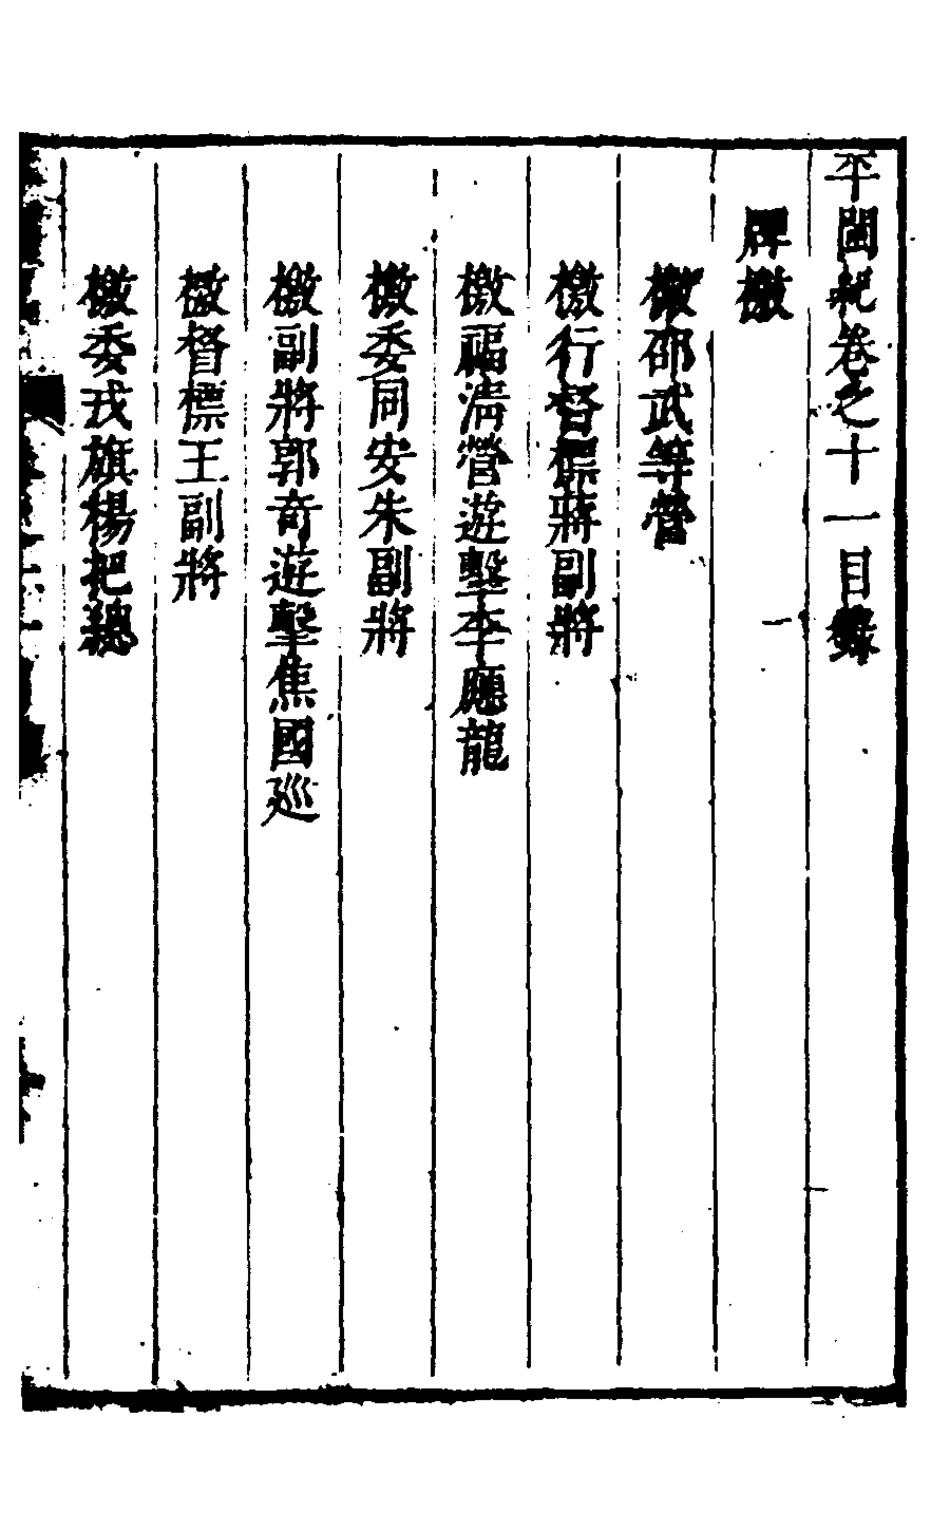 平閩紀卷之十一目錄
牌檄
檄邵武等營
檄行督標蔣副將
檄福淸營遊擊李應龍
檄委同安朱副將
檄副將郭奇遊擊焦國廵
檄督標王副將
檄委戎旗楊把總